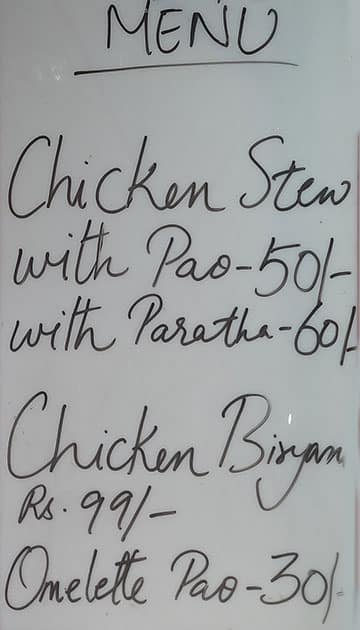 MENU
Chicken Stew
with Pao-50/-
with Paratha-60/-
Chicken Biryani
Rs. 99/-
Omelette Pao-30/-